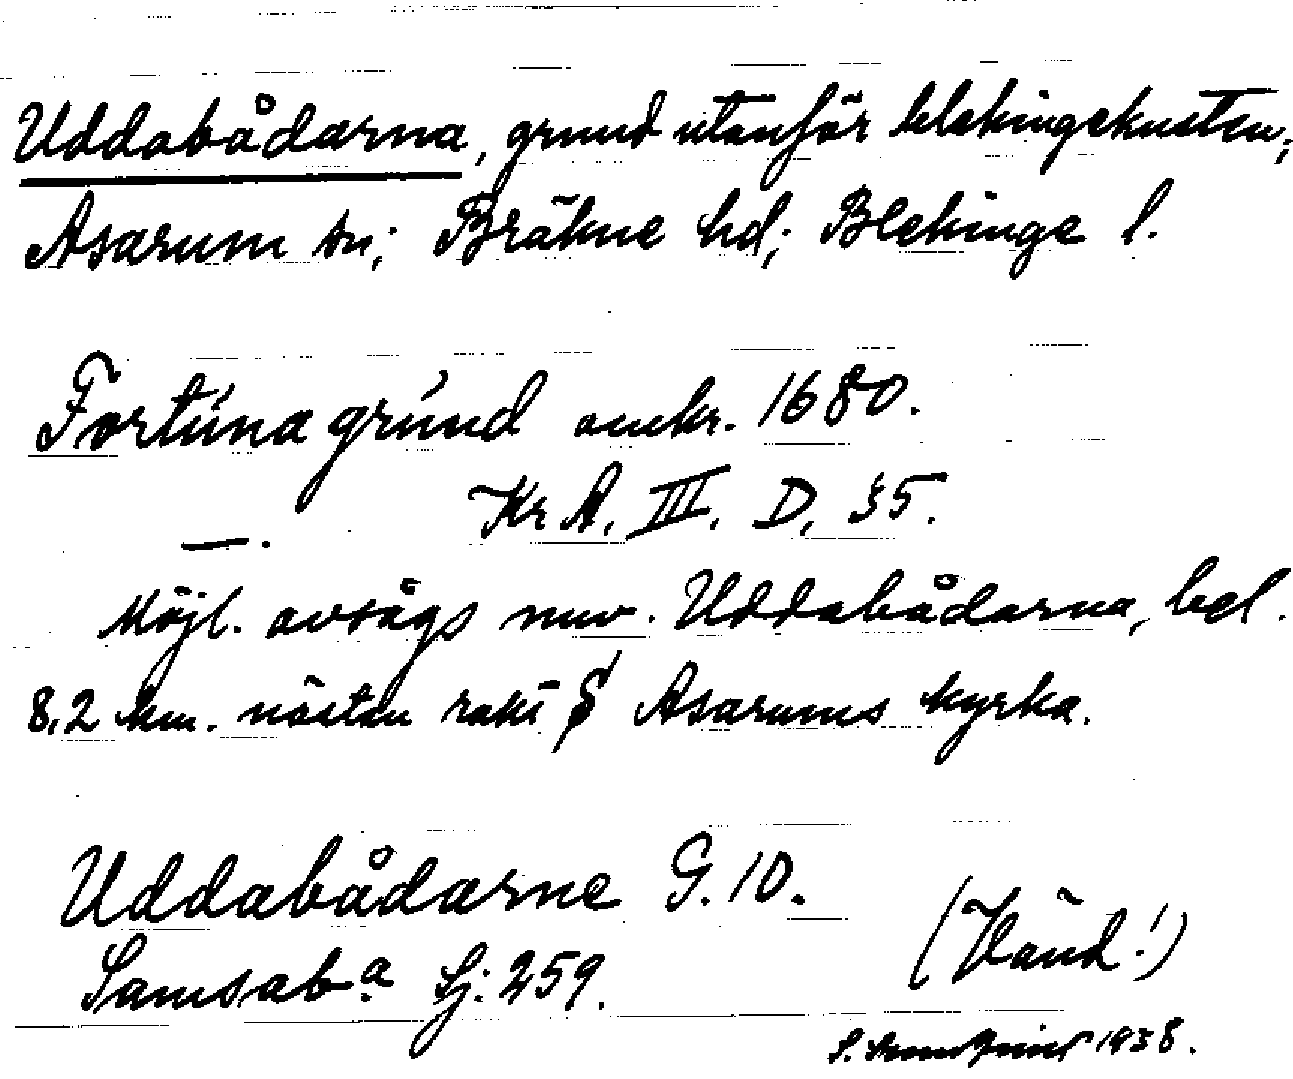 Uddabådarna, grund utanför blekingekusten;
Asarum sn; Bräkne hd; Blekinge l.
Fortúna grúnd omkr. 1680.
KrA. III. D. 35.
—.
Möjl. avsågs nuv. Uddabådarna, bel.
8,2 km. nästan rakt S Asarums kyrka.
Uddabådarne G. 10.
Samsaba Sj: 259.
(Vänd!)
1938.